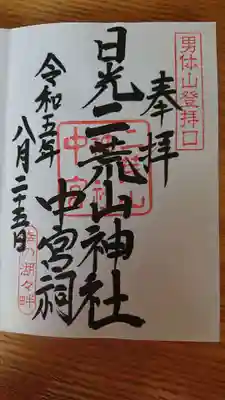 男体山登拝口
奉拝
日光二荒山神社
中宮祠
令和五年
八月二十五日